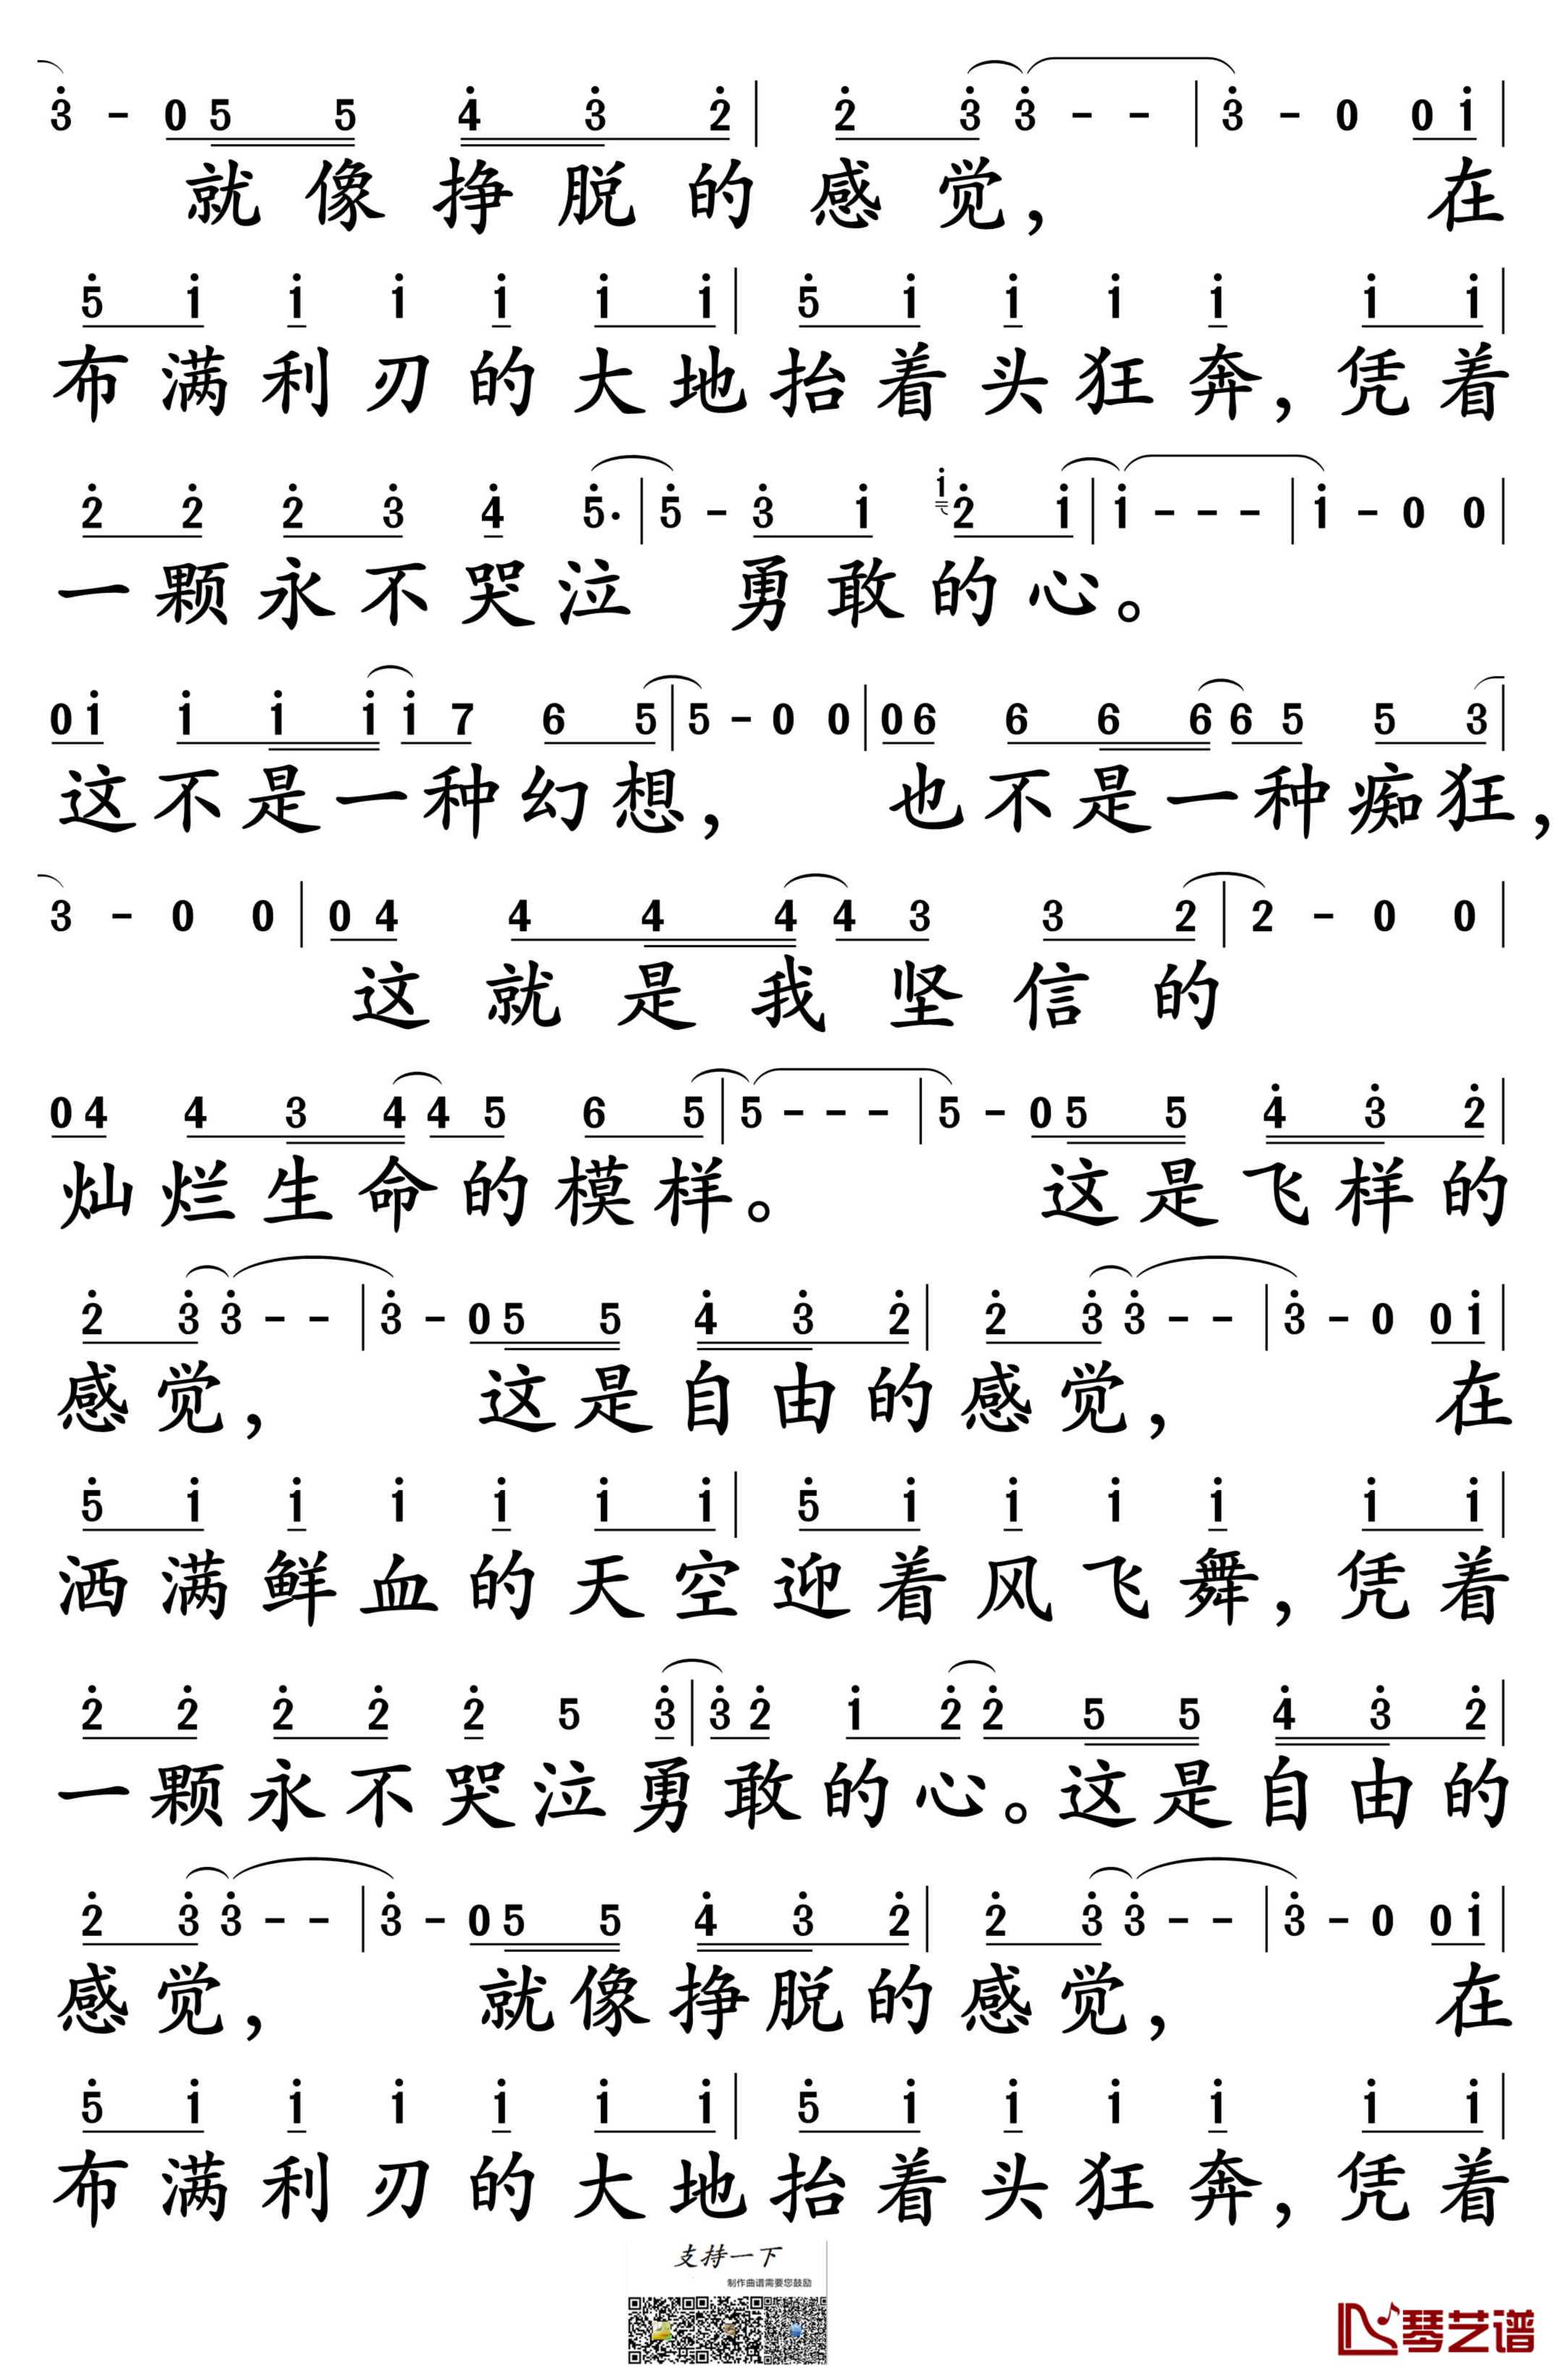 3 - 0 5 5 4 3 2 | 2 3 3 - - | 3 - 0 0 1 |
就像挣脱的感觉， 在
5 1 1 1 1 1 1 | 5 1 1 1 1 1 1 |
布满利刃的大地抬着头狂奔，凭着
2 2 2 3 4 5· | 5 - 3 1 1 2 1 | 1 - - - | 1 - 0 0 |
一颗永不哭泣 勇敢的心。
0 1 1 1 1 1 7 6 5 | 5 - 0 0 | 0 6 6 6 6 6 5 5 3 |
这不是一种幻想， 也不是一种痴狂，
3 - 0 0 | 0 4 4 4 4 4 3 3 2 | 2 - 0 0 |
这就是我坚信的
0 4 4 3 4 4 5 6 5 | 5 - - - | 5 - 0 5 5 4 3 2 |
灿烂生命的模样。 这是飞样的
2 3 3 - - | 3 - 0 5 5 4 3 2 | 2 3 3 - - | 3 - 0 0 1 |
感觉， 这是自由的感觉， 在
5 1 1 1 1 1 1 | 5 1 1 1 1 1 1 |
洒满鲜血的天空迎着风飞舞，凭着
2 2 2 2 2 5 3 | 3 2 1 2 2 5 5 4 3 2 |
一颗永不哭泣勇敢的心。这是自由的
2 3 3 - - | 3 - 0 5 5 4 3 2 | 2 3 3 - - | 3 - 0 0 1 |
感觉， 就像挣脱的感觉， 在
5 1 1 1 1 1 1 | 5 1 1 1 1 1 1 |
布满利刃的大地抬着头狂奔，凭着
支持一下
制作曲谱需要您鼓励
琴艺谱